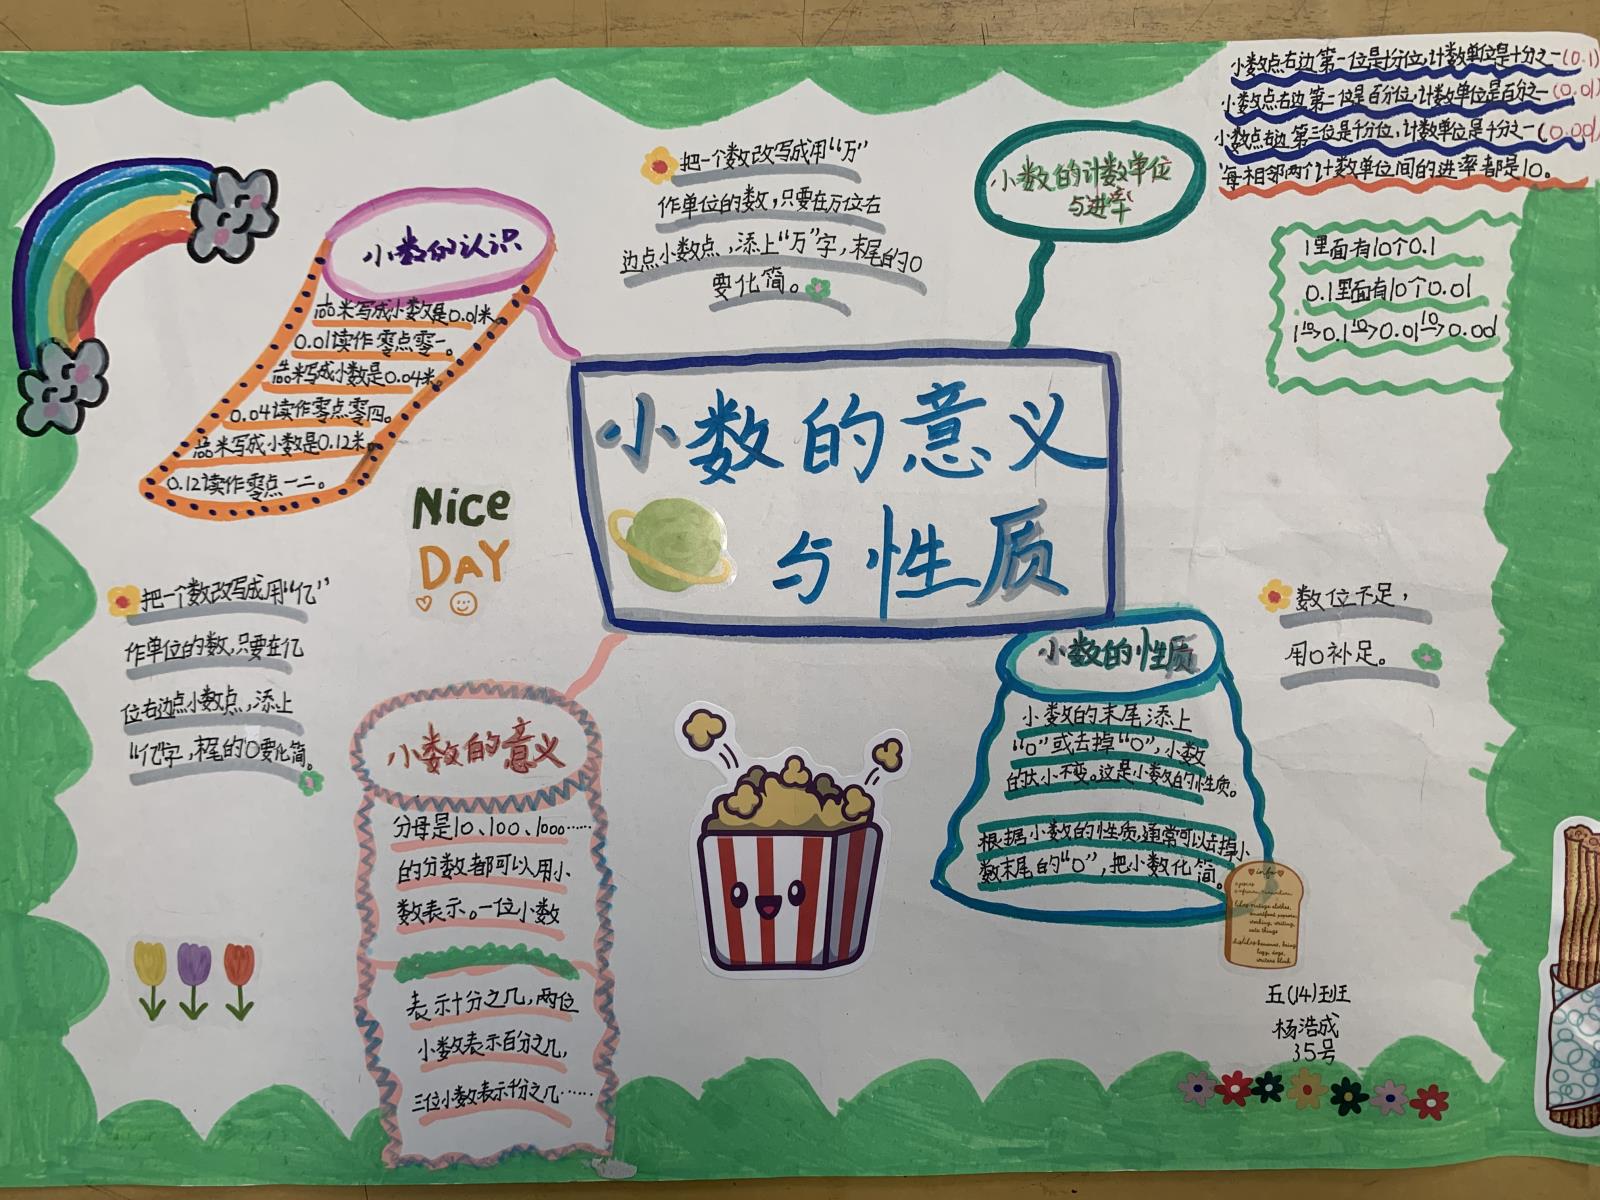 小数点右边第一位是十分位,计数单位是十分之一(0.1)
小数点右边第二位是百分位,计数单位是百分之一(0.01)
小数点右边第三位是千分位,计数单位是千分之一(0.001
每相邻两个计数单位间的进率都是10。
把一个数改写成用“万”
作单位的数,只要在万位右
边点小数点,添上“万”字,末尾的0
要化简。
小数的计数单位
与进率
1里面有10个0.1
0.1里面有10个0.01
1 10→0.1 10→0.01 10→0.001
小数的认识
1/100米写成小数是0.01米。
0.01读作零点零一。
4/100米写成小数是0.04米。
0.04读作零点零四。
12/100米写成小数是0.12米。
0.12读作零点一二。
小数的意义
与性质
Nice
DAY
把一个数改写成用“亿”
作单位的数,只要在亿
位右边点小数点,添上
“亿”字,末尾的0要化简。
数位不足,
用0补足。
小数的意义
分母是10、100、1000……
的分数都可以用小
数表示。一位小数
表示十分之几,两位
小数表示百分之几,
三位小数表示千分之几……
小数的性质
小数的末尾添上
“0”或去掉“0”,小数
的大小不变。这是小数的性质。
根据小数的性质,通常可以去掉小
数末尾的“0”,把小数化简。
info
五(14)班
杨浩成
35号